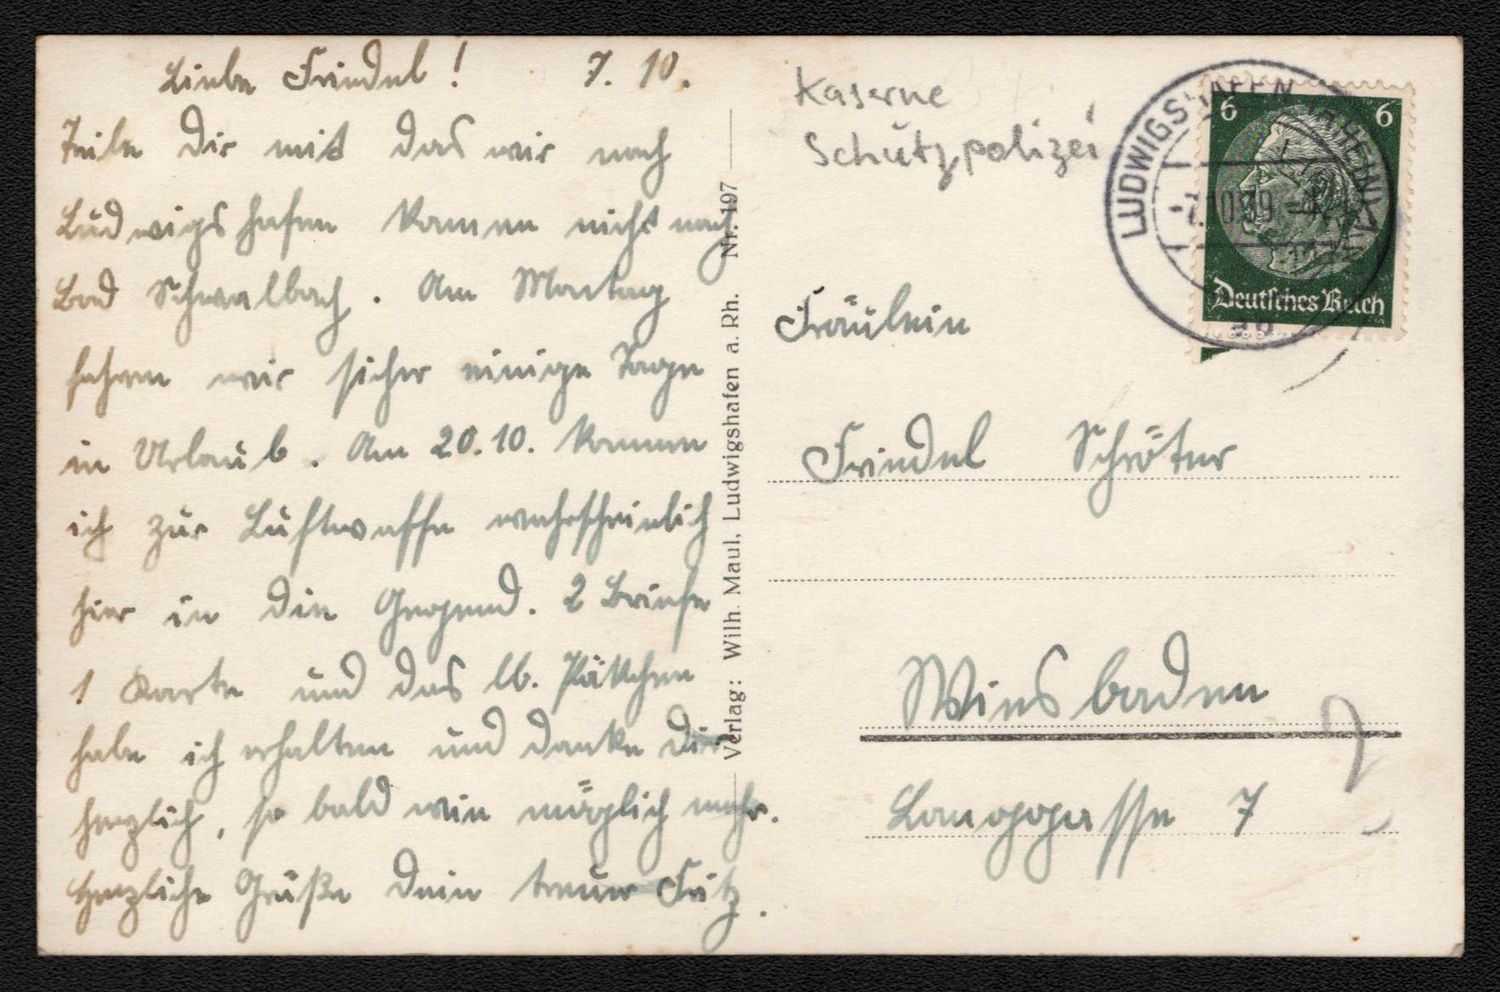 Liebe Friedel! 7. 10.
Teile dir mit das wir nach
Ludwigshafen kamen nicht nach
Bad Schwalbach. Am Montag
fahren wir sicher einige Tage
in Urlaub. Am 20.10. komme
ich zur Luftwaffe wahrscheinlich
hier in die Gegend. 2 Briefe
1 Karte und das lb. Päkchen
habe ich erhalten und danke dir
herzlich, so bald wie möglich mehr.
Herzliche Grüße dein treuer Fritz.
Verlag: Wilh. Maul, Ludwigshafen a. Rh. Nr. 197
Kaserne
Schutzpolizei
LUDWIGSHAFEN (RHEIN)
-7.10.39
ad
6 6
Deutsches Reich
Fräulein
Friedel Schröter
Wiesbaden
Langgasse 7